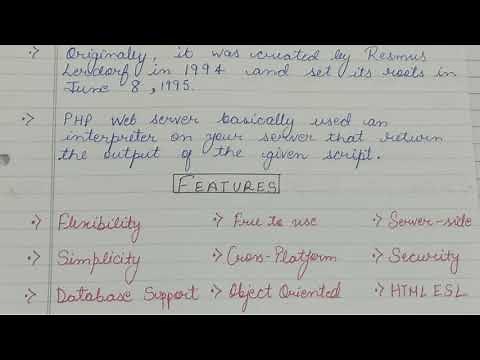 ·> Originally, it was created by Resmus
Lerdorf in 1994 and set its roots in
June 8, 1995.
·> PHP Web server basically used an
interpreter on your server that return
the output of the given script.
FEATURES
·> Flexibility ·> Free to use ·> Server-side
·> Simplicity ·> Cross-Platform ·> Security
·> Database Support ·> Object Oriented ·> HTML ESL